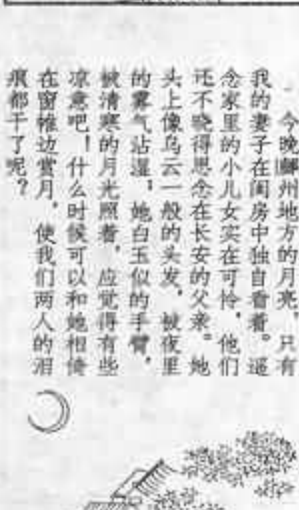 今晚鄜州地方的月亮，只有
我的妻子在闺房中独自看着。遥
念家里的小儿女实在可怜，他们
还不晓得思念在长安的父亲。她
头上像乌云一般的头发，被夜里
的雾气沾湿；她白玉似的手臂，
被清寒的月光照着，应觉得有些
凉意吧！什么时候可以和她相倚
在窗帷边赏月，使我们两人的泪
痕都干了呢？